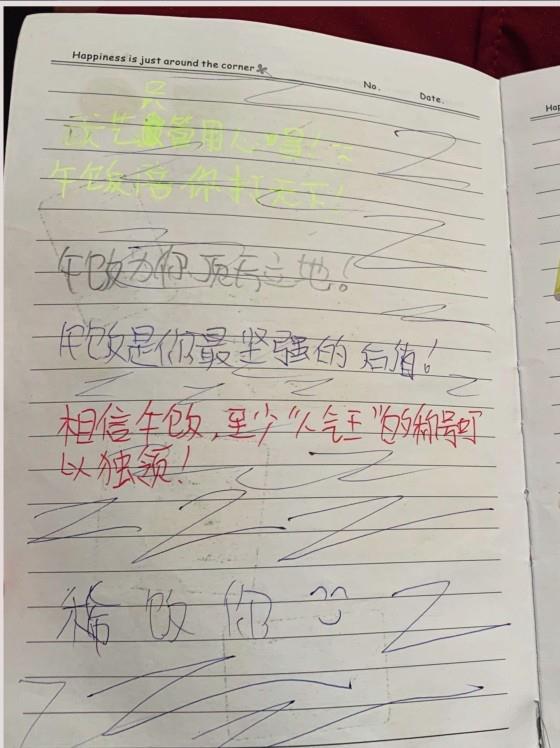 Happiness is just around the corner
No.
Date.
只
艺管用心唱!
午饭陪你打天下!
午饭为你顶天立地!
午饭是你最坚强的后盾!
相信午饭,至少"人气王"的称号可
以独领!
稀饭你
Hap